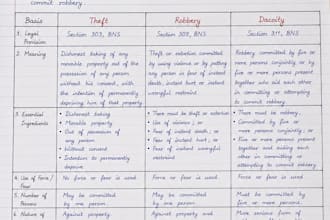 commit robbery.
Basis Theft Robbery Dacoity
1. Legal Provision Section 303, BNS Section 309, BNS Section 311, BNS
2. Meaning
Dishonest taking of any
movable property out of the
possession of any person
without his consent, with
the intention of permanently
depriving him of that property.
Theft or extortion committed
by using violence or by putting
any person in fear of instant
death, instant hurt or instant
wrongful restraint
Robbery committed by five or
more persons conjointly, or by
five or more persons present
together who aid each other
in committing or attempting
to commit robbery.
3. Essential Ingredients
• Dishonest taking
• Movable property
• Out of possession of
any person
• Without consent
• Intention to permanently
dispossess
• There must be theft or extortion
• Use of violence; or
• Fear of instant death; or
• Fear of instant hurt; or
• Fear of instant wrongful
restraint
• There must be robbery.
• Committed by five or
more persons conjointly; or
• Five or more persons present
together and aiding each
other in committing or
attempting to commit robbery
4. Use of Force / Fear
No force or fear is used.
Force or fear is used.
Force or fear is used.
5. Number of Persons
May be committed
by one person.
May be committed
by one person.
Must be committed by
five or more persons.
6. Nature of
Against property
Against property and
More serious form of